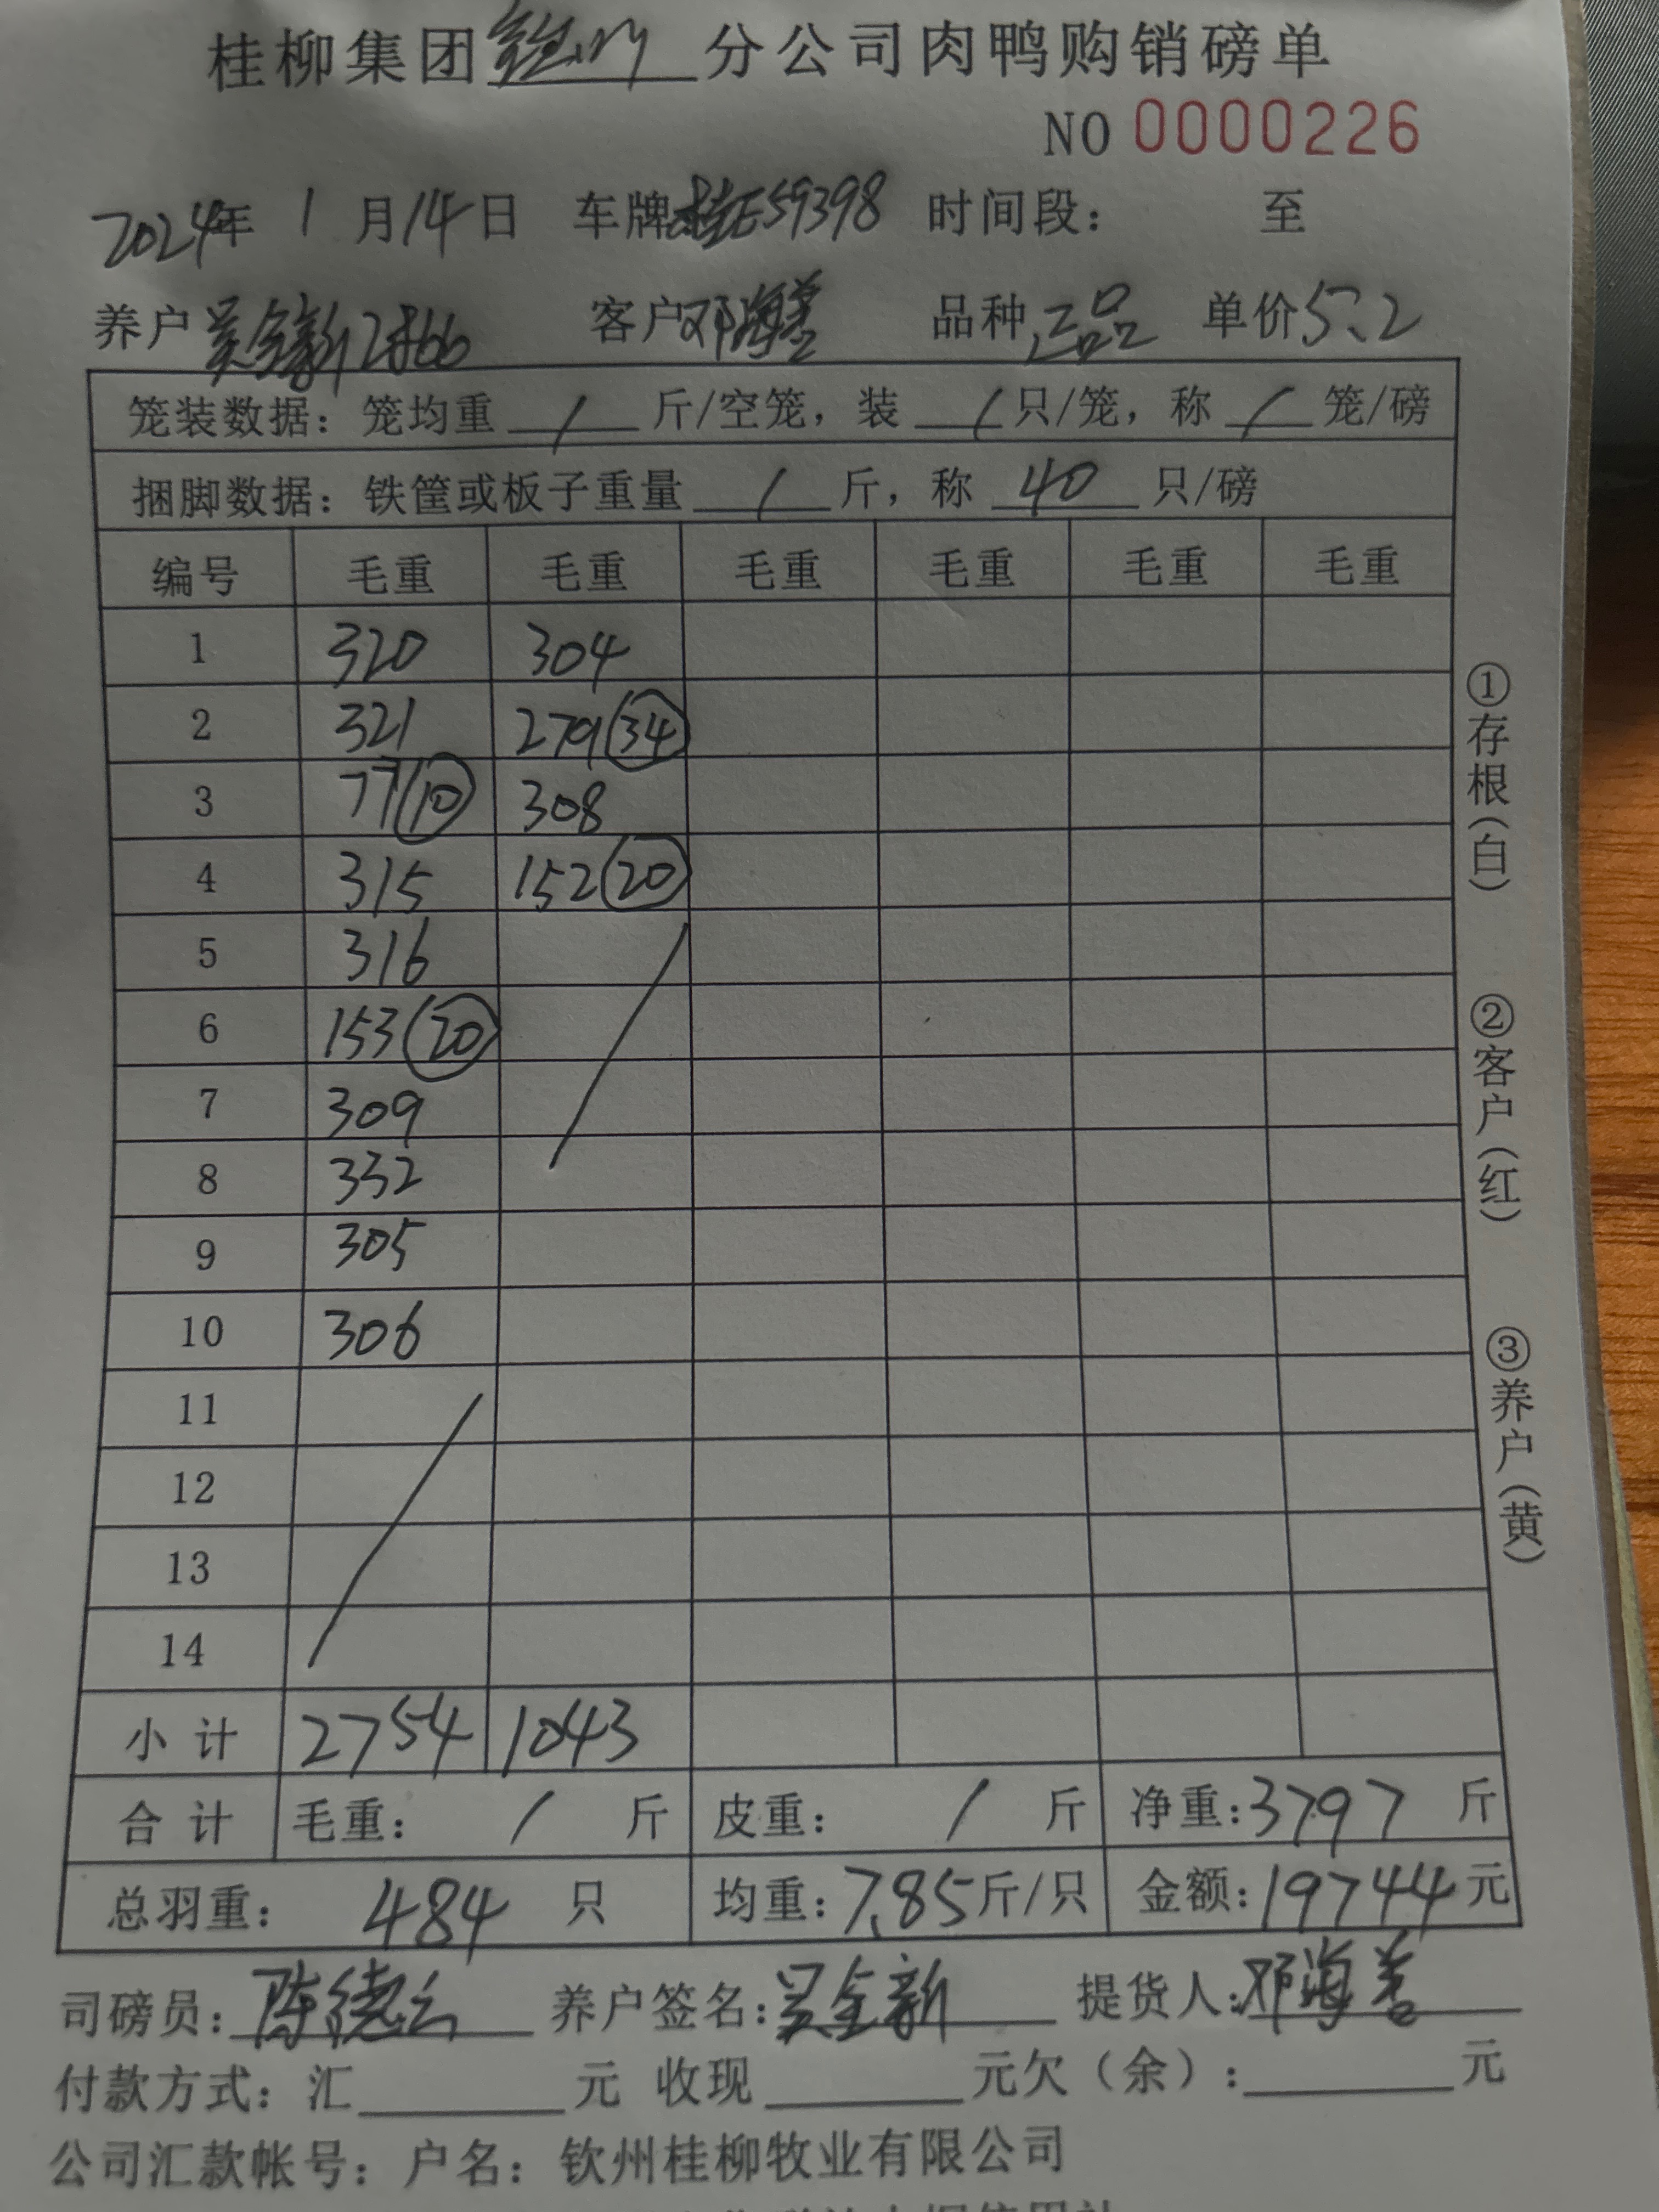 桂柳集团钦州分公司肉鸭购销磅单
NO 0000226
2024年 1 月14日 车牌桂E59398 时间段： 至
养户吴全新 客户邓海善 品种正品 单价5.2
笼装数据：笼均重 / 斤/空笼，装 / 只/笼，称 / 笼/磅
捆脚数据：铁筐或板子重量 / 斤，称 40 只/磅
编号 毛重 毛重 毛重 毛重 毛重 毛重
1 320 304
2 321 279 (34)
3 77 (10) 308
4 315 152 (20)
5 316
6 153 (20)
7 309
8 332
9 305
10 306
11
12
13
14
小计 2754 1043
合计 毛重： / 斤 皮重： / 斤 净重：3797 斤
总羽重： 484 只 均重：7.85斤/只 金额：19744元
司磅员：陈德云 养户签名：吴全新 提货人：邓海善
付款方式：汇 元 收现 元欠（余）： 元
公司汇款帐号：户名：钦州桂柳牧业有限公司
①存根（白） ②客户（红） ③养户（黄）